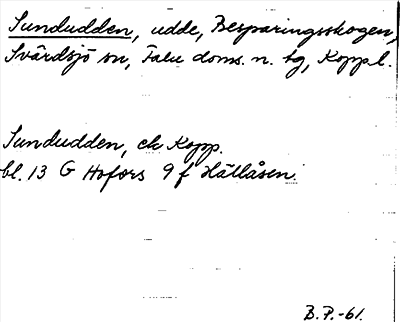 Sundudden, udde, Besparingsskogen,
Svärdsjö sn, Falu doms. n. tg, Kopp.l.
Sundudden, ek Kopp.
bl. 13 G Hofors 9 f Hällåsen.
B.P.-61.